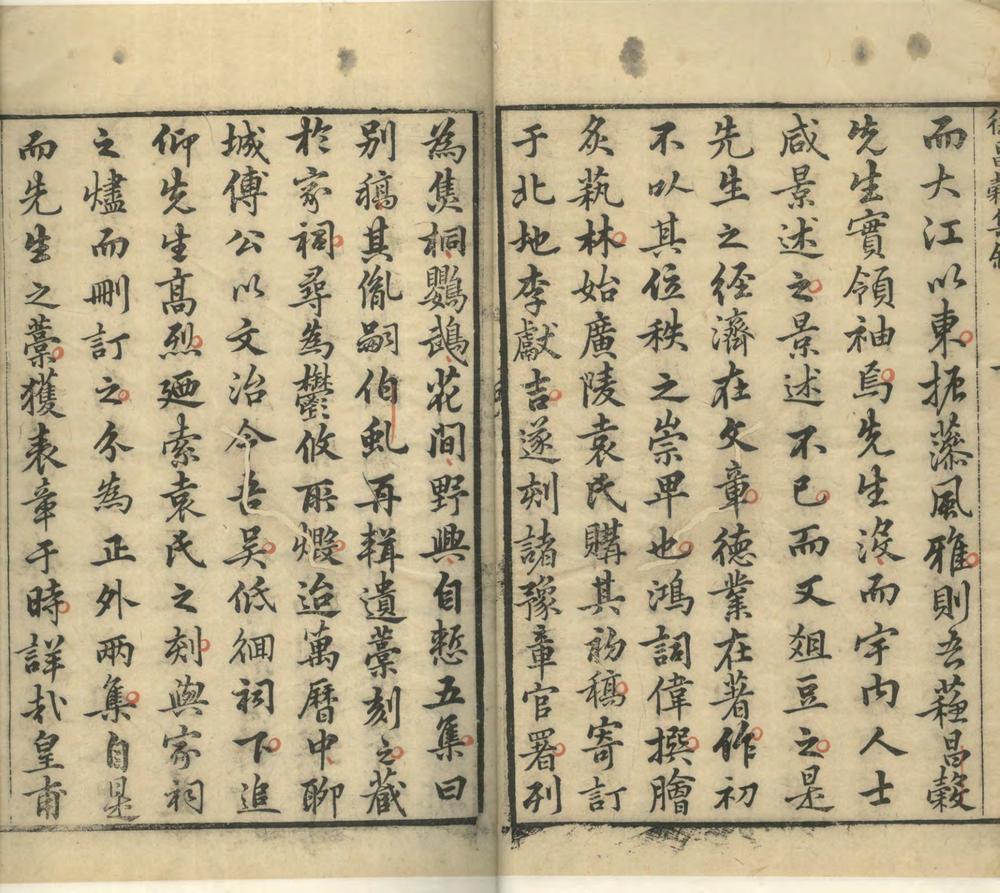 而大江以東振藻風雅則吾蘓昌穀
先生實領袖焉先生沒而宇內人士
咸景述之景述不已而又爼豆之是
先生之經濟在文章德業在著作初
不以其位秩之崇畢也鴻詞偉撰膾
炙蓺林始廣陵袁氏購其初稿寄訂
于北地李獻吉遂刻諸豫章官署列
為焦桐鸚鵡花間野興自慙五集曰
別稿其胤嗣伯虬再輯遺藁刻之藏
於家祠尋為欝攸所燬迨萬曆中聊
城傅公以文治令吾吳低徊祠下追
仰先生高烈廼索袁氏之刻與家祠
之燼而刪訂之分為正外兩集自是
而先生之藁獲表章于時詳哉皇甫